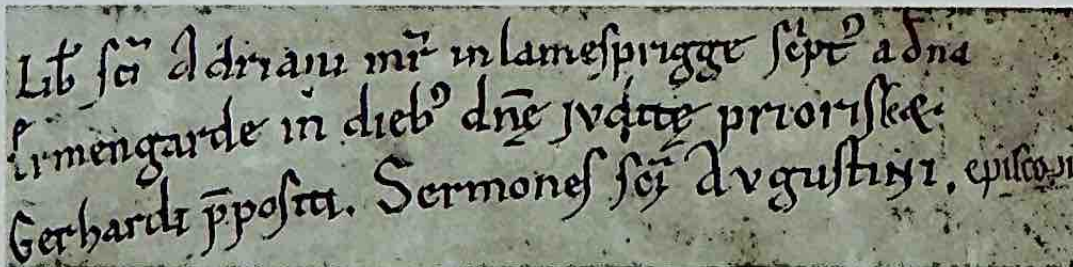 Lib̄ sc̄i Adriani mr̄is in lamesprigge sc̄ptꝰ a dn̄a
Ermengarde in dieb⁹ dn̄ę Ivdittę priorissę &
Gerhardi p̄positi. Sermones sc̄i Avgustini. episcopi